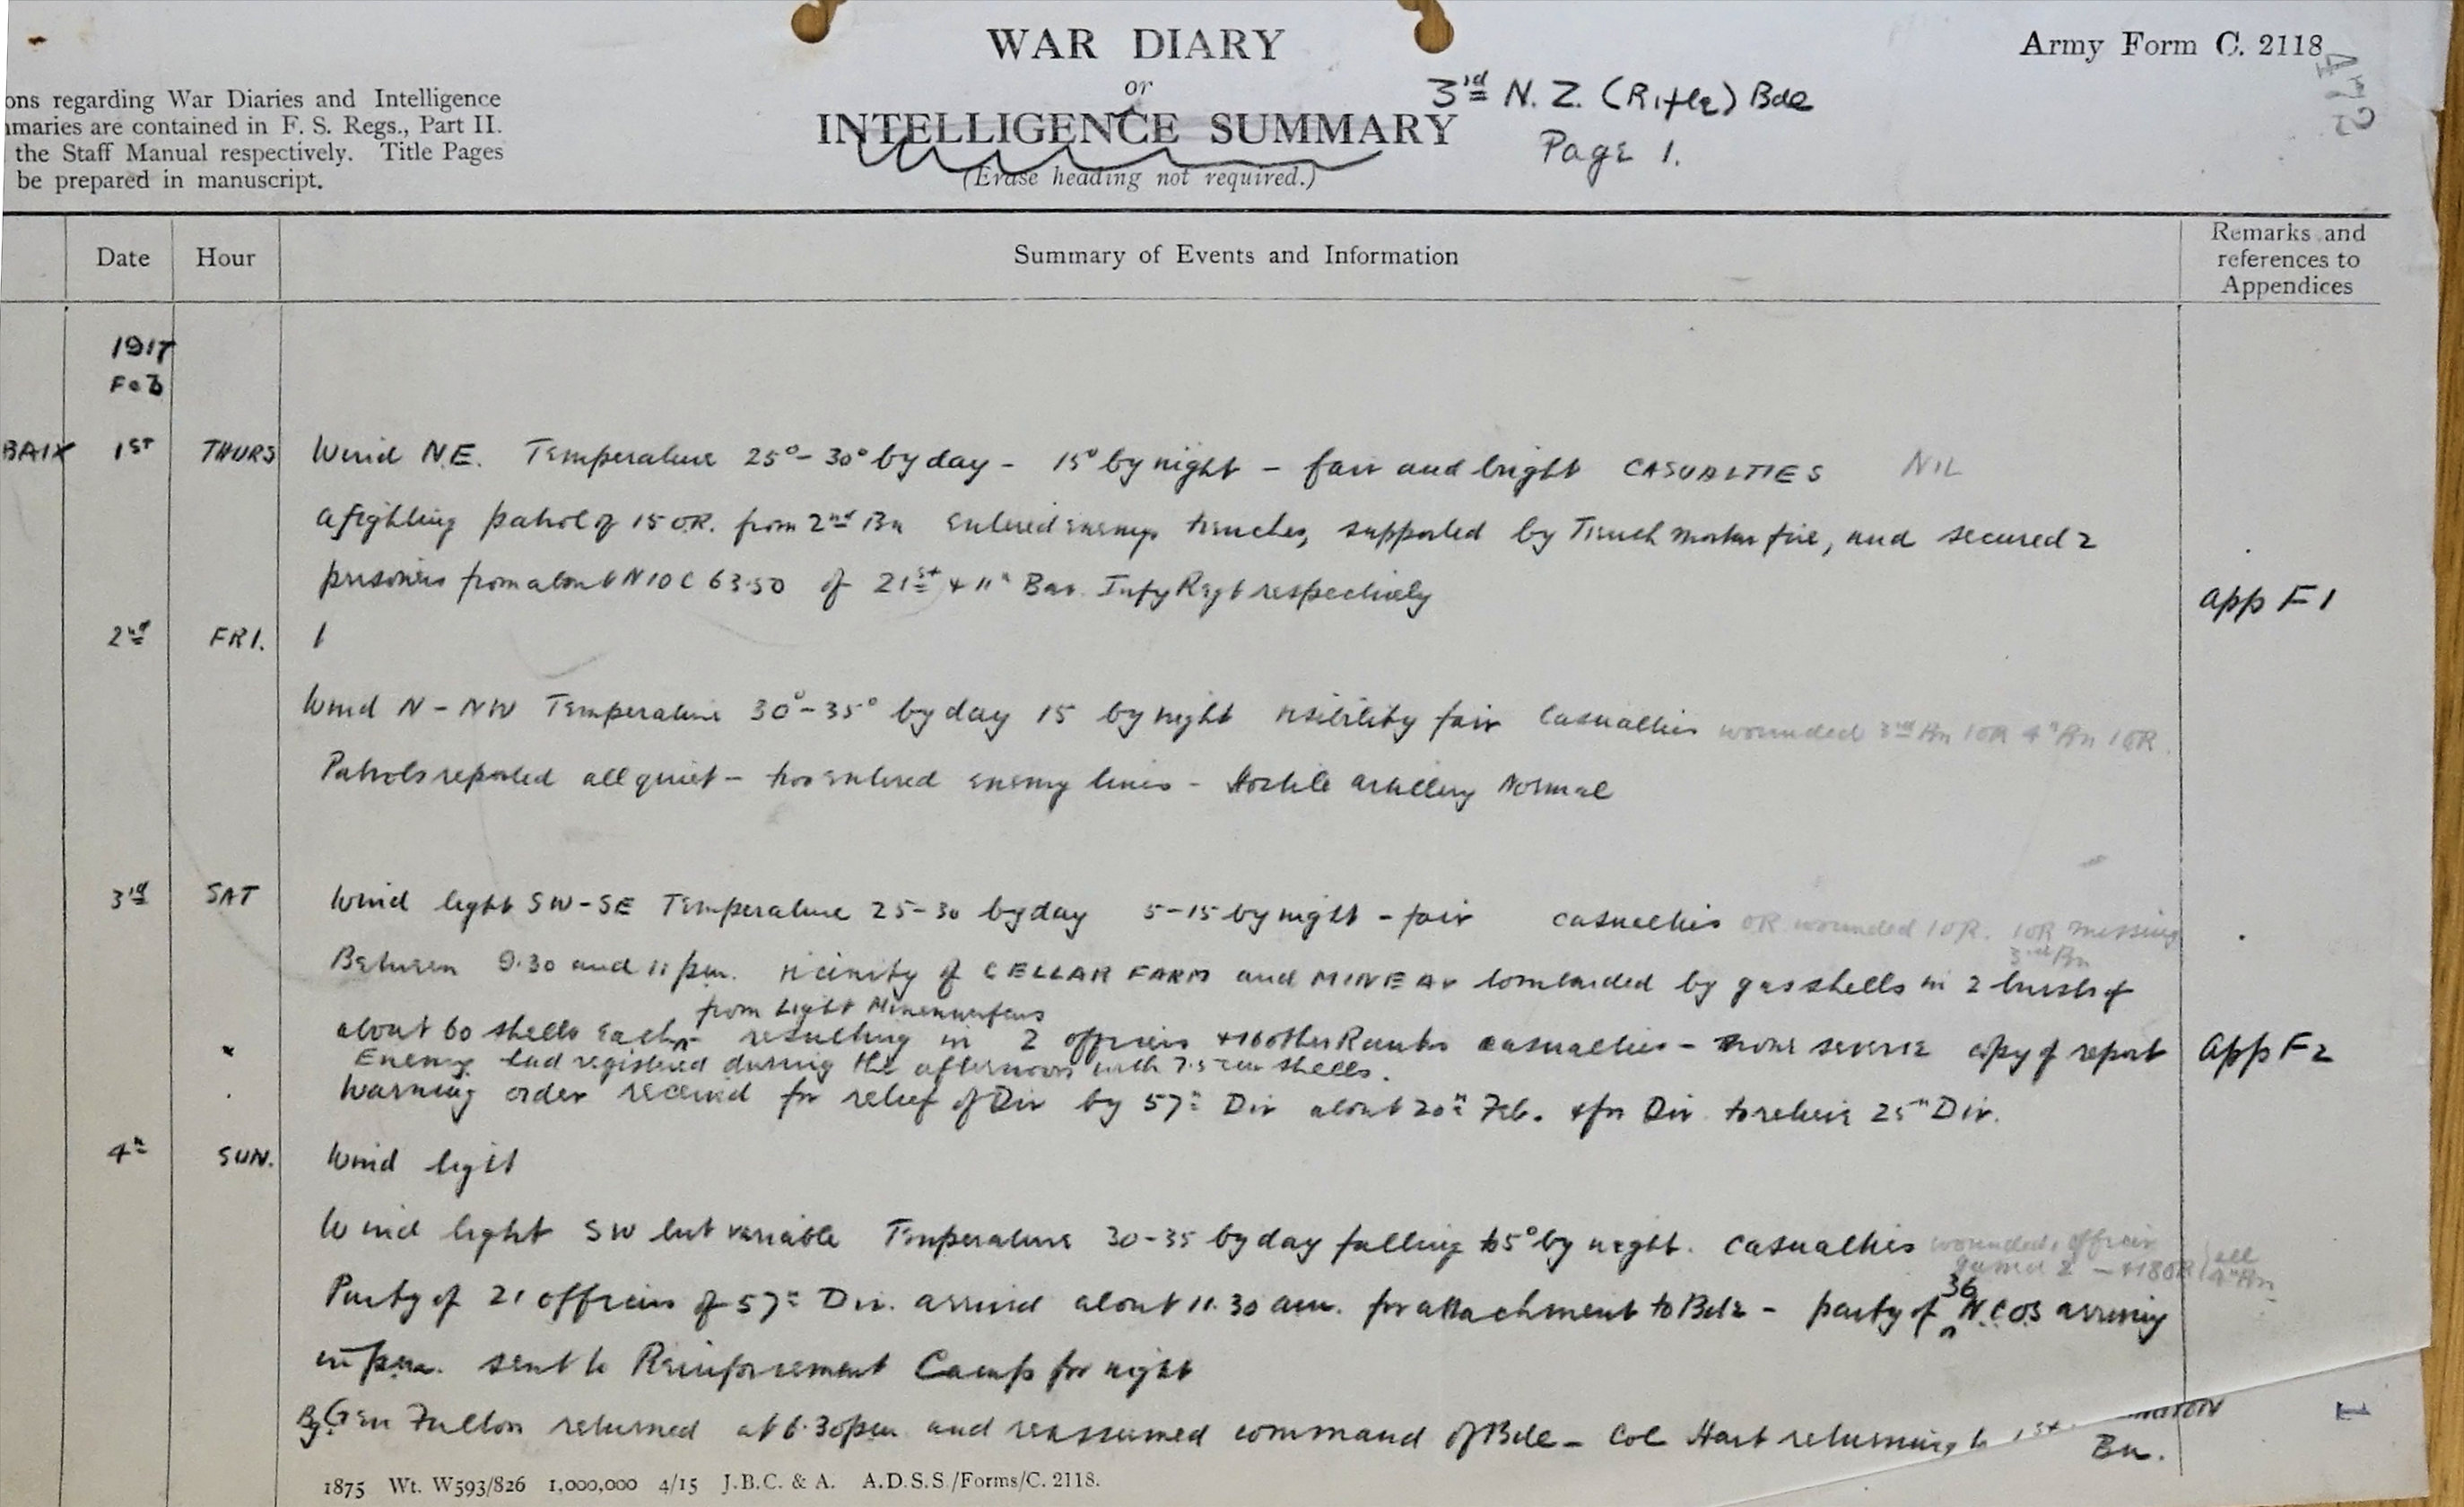 WAR DIARY
or
INTELLIGENCE SUMMARY
(Erase heading not required.)
Army Form C. 2118
3rd N. Z. (Rifle) Bde
Page 1.
ons regarding War Diaries and Intelligence
mmaries are contained in F. S. Regs., Part II.
the Staff Manual respectively. Title Pages
be prepared in manuscript.
Date Hour Summary of Events and Information Remarks and references to Appendices
1917
Feb
BAIX 1ST THURS Wind N.E. Temperature 25°-30° by day - 15° by night - fair and bright CASUALTIES NIL
A fighting patrol of 15 OR. from 2nd Bn entered enemys trenches, supported by Trench mortar fire, and secured 2
prisoners from about N10C 63.50 of 21st & 11th Bav. Infy Regt respectively app F1
2nd FRI. 1
Wind N - NW Temperature 30°-35° by day 15 by night visibility fair Casualties wounded 3rd Bn 1OR 4th Bn 1OR.
Patrols reported all quiet - two entered enemy lines - Hostile artillery Normal
3rd SAT Wind light SW-SE Temperature 25-30 by day 5-15 by night - fair casualties OR wounded 1OR. 1OR missing
3rd Bn
Between 9.30 and 11 pm. vicinity of CELLAR FARM and MINE AV bombarded by gas shells in 2 bursts of
from Light Minenwerfers
about 60 shells each resulting in 2 officers + 16 other Ranks casualties - none severe copy of report app F2
Enemy had registered during the afternoon with 7.5 cm shells.
Warning order received for relief of Div by 57th Div about 20th Feb. & for Div to relieve 25th Div.
4th SUN. Wind light
Wind light SW but variable Temperature 30-35 by day falling to 5° by night. Casualties wounded, officer
gassed 2 - +18OR all 4th Bn
36
Party of 21 officers of 57th Div. arrived about 11.30 am. for attachment to Bde - party of N.C.O.S arriving
in pm. sent to Reinforcement Camp for night
Bg. Gen Fulton returned at 6.30pm and reassumed command of Bde - Col Hart returning to 1st
Bn.
1875 Wt. W593/826 1,000,000 4/15 J.B.C. & A. A.D.S.S./Forms/C. 2118.